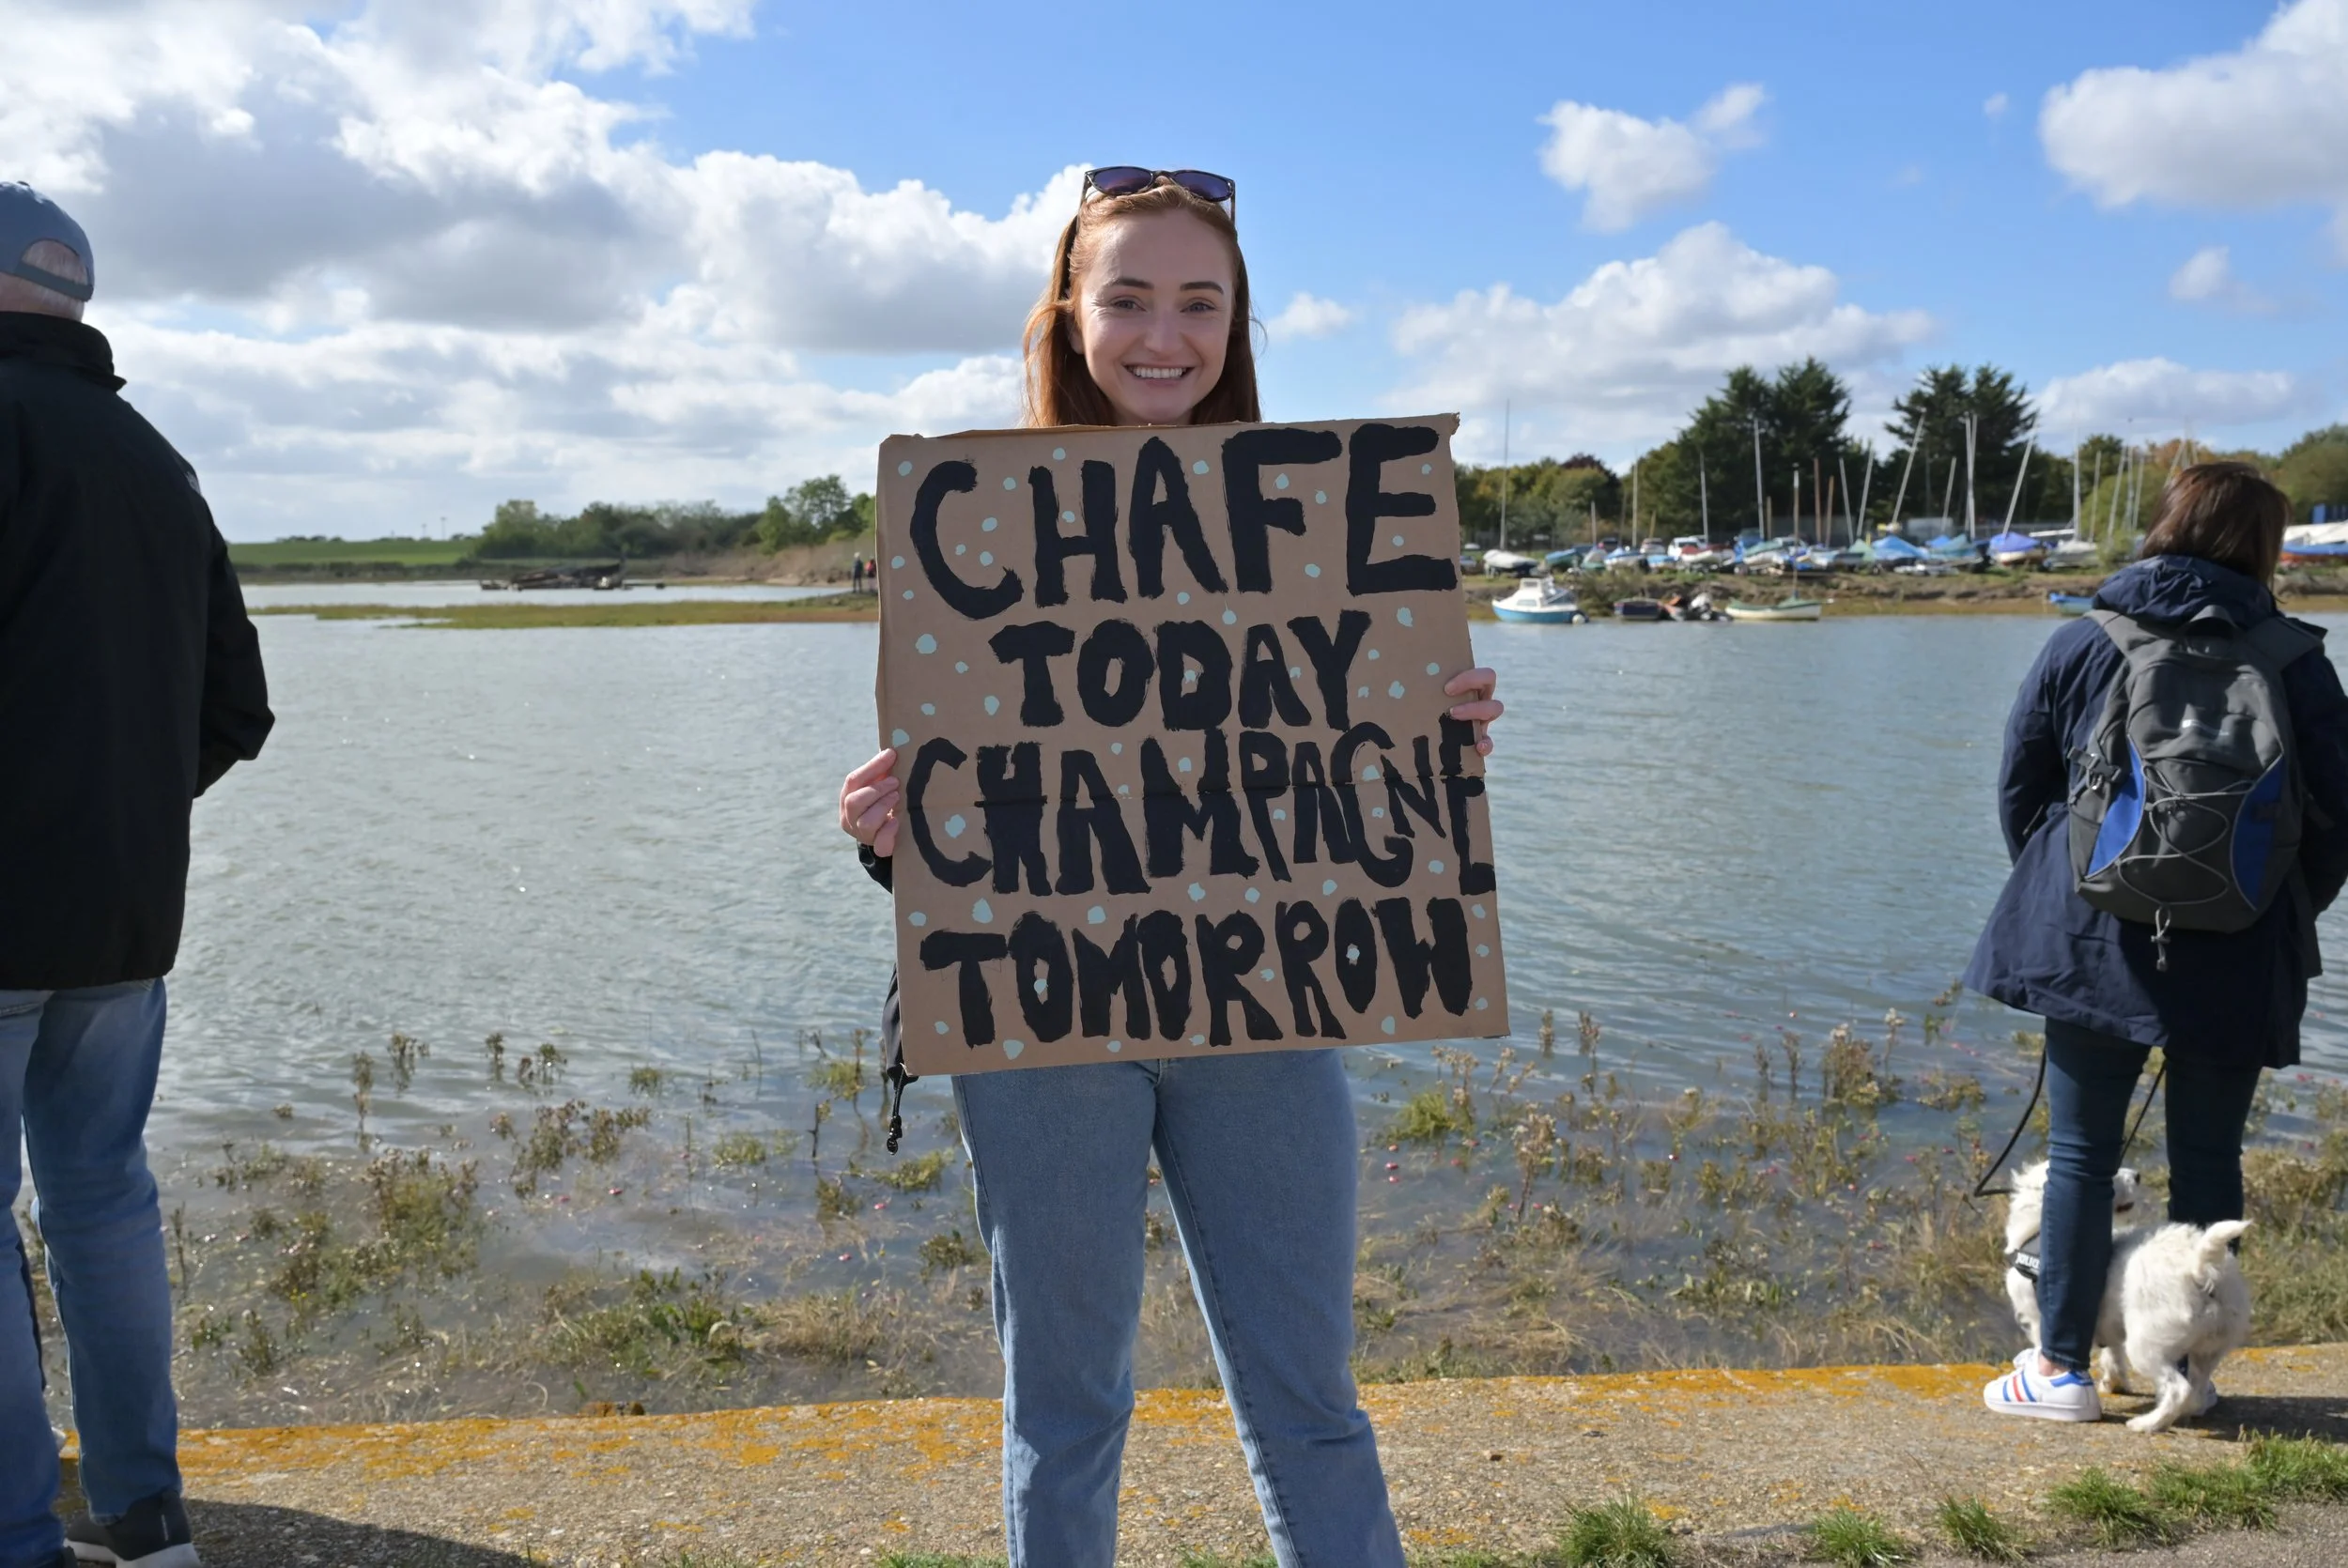 CHAFE
TODAY
CHAMPAGNE
TOMORROW